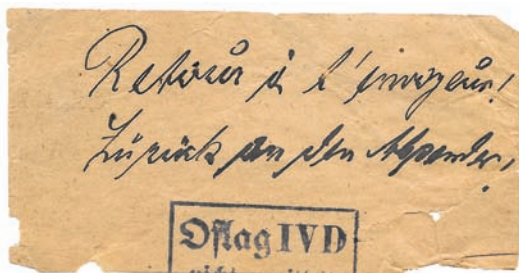 Retour à l'envoyeur!
Zurück an den Absender!
Oflag IV D